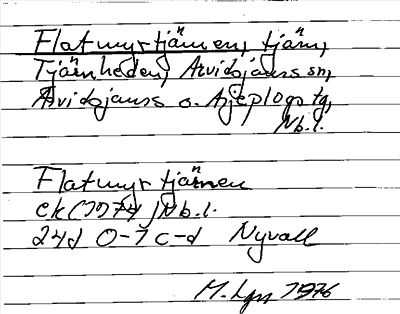 Flatmyrtjärnen, tjärn,
Tjärnheden, Arvidsjaurs sn,
Arvidsjaurs o. Arjeplogs tg,
Nb.l.
Flatmyrtjärnen
ek (1974) Nb.l.
24d 0-1 c-d Nyvall
M. 1976